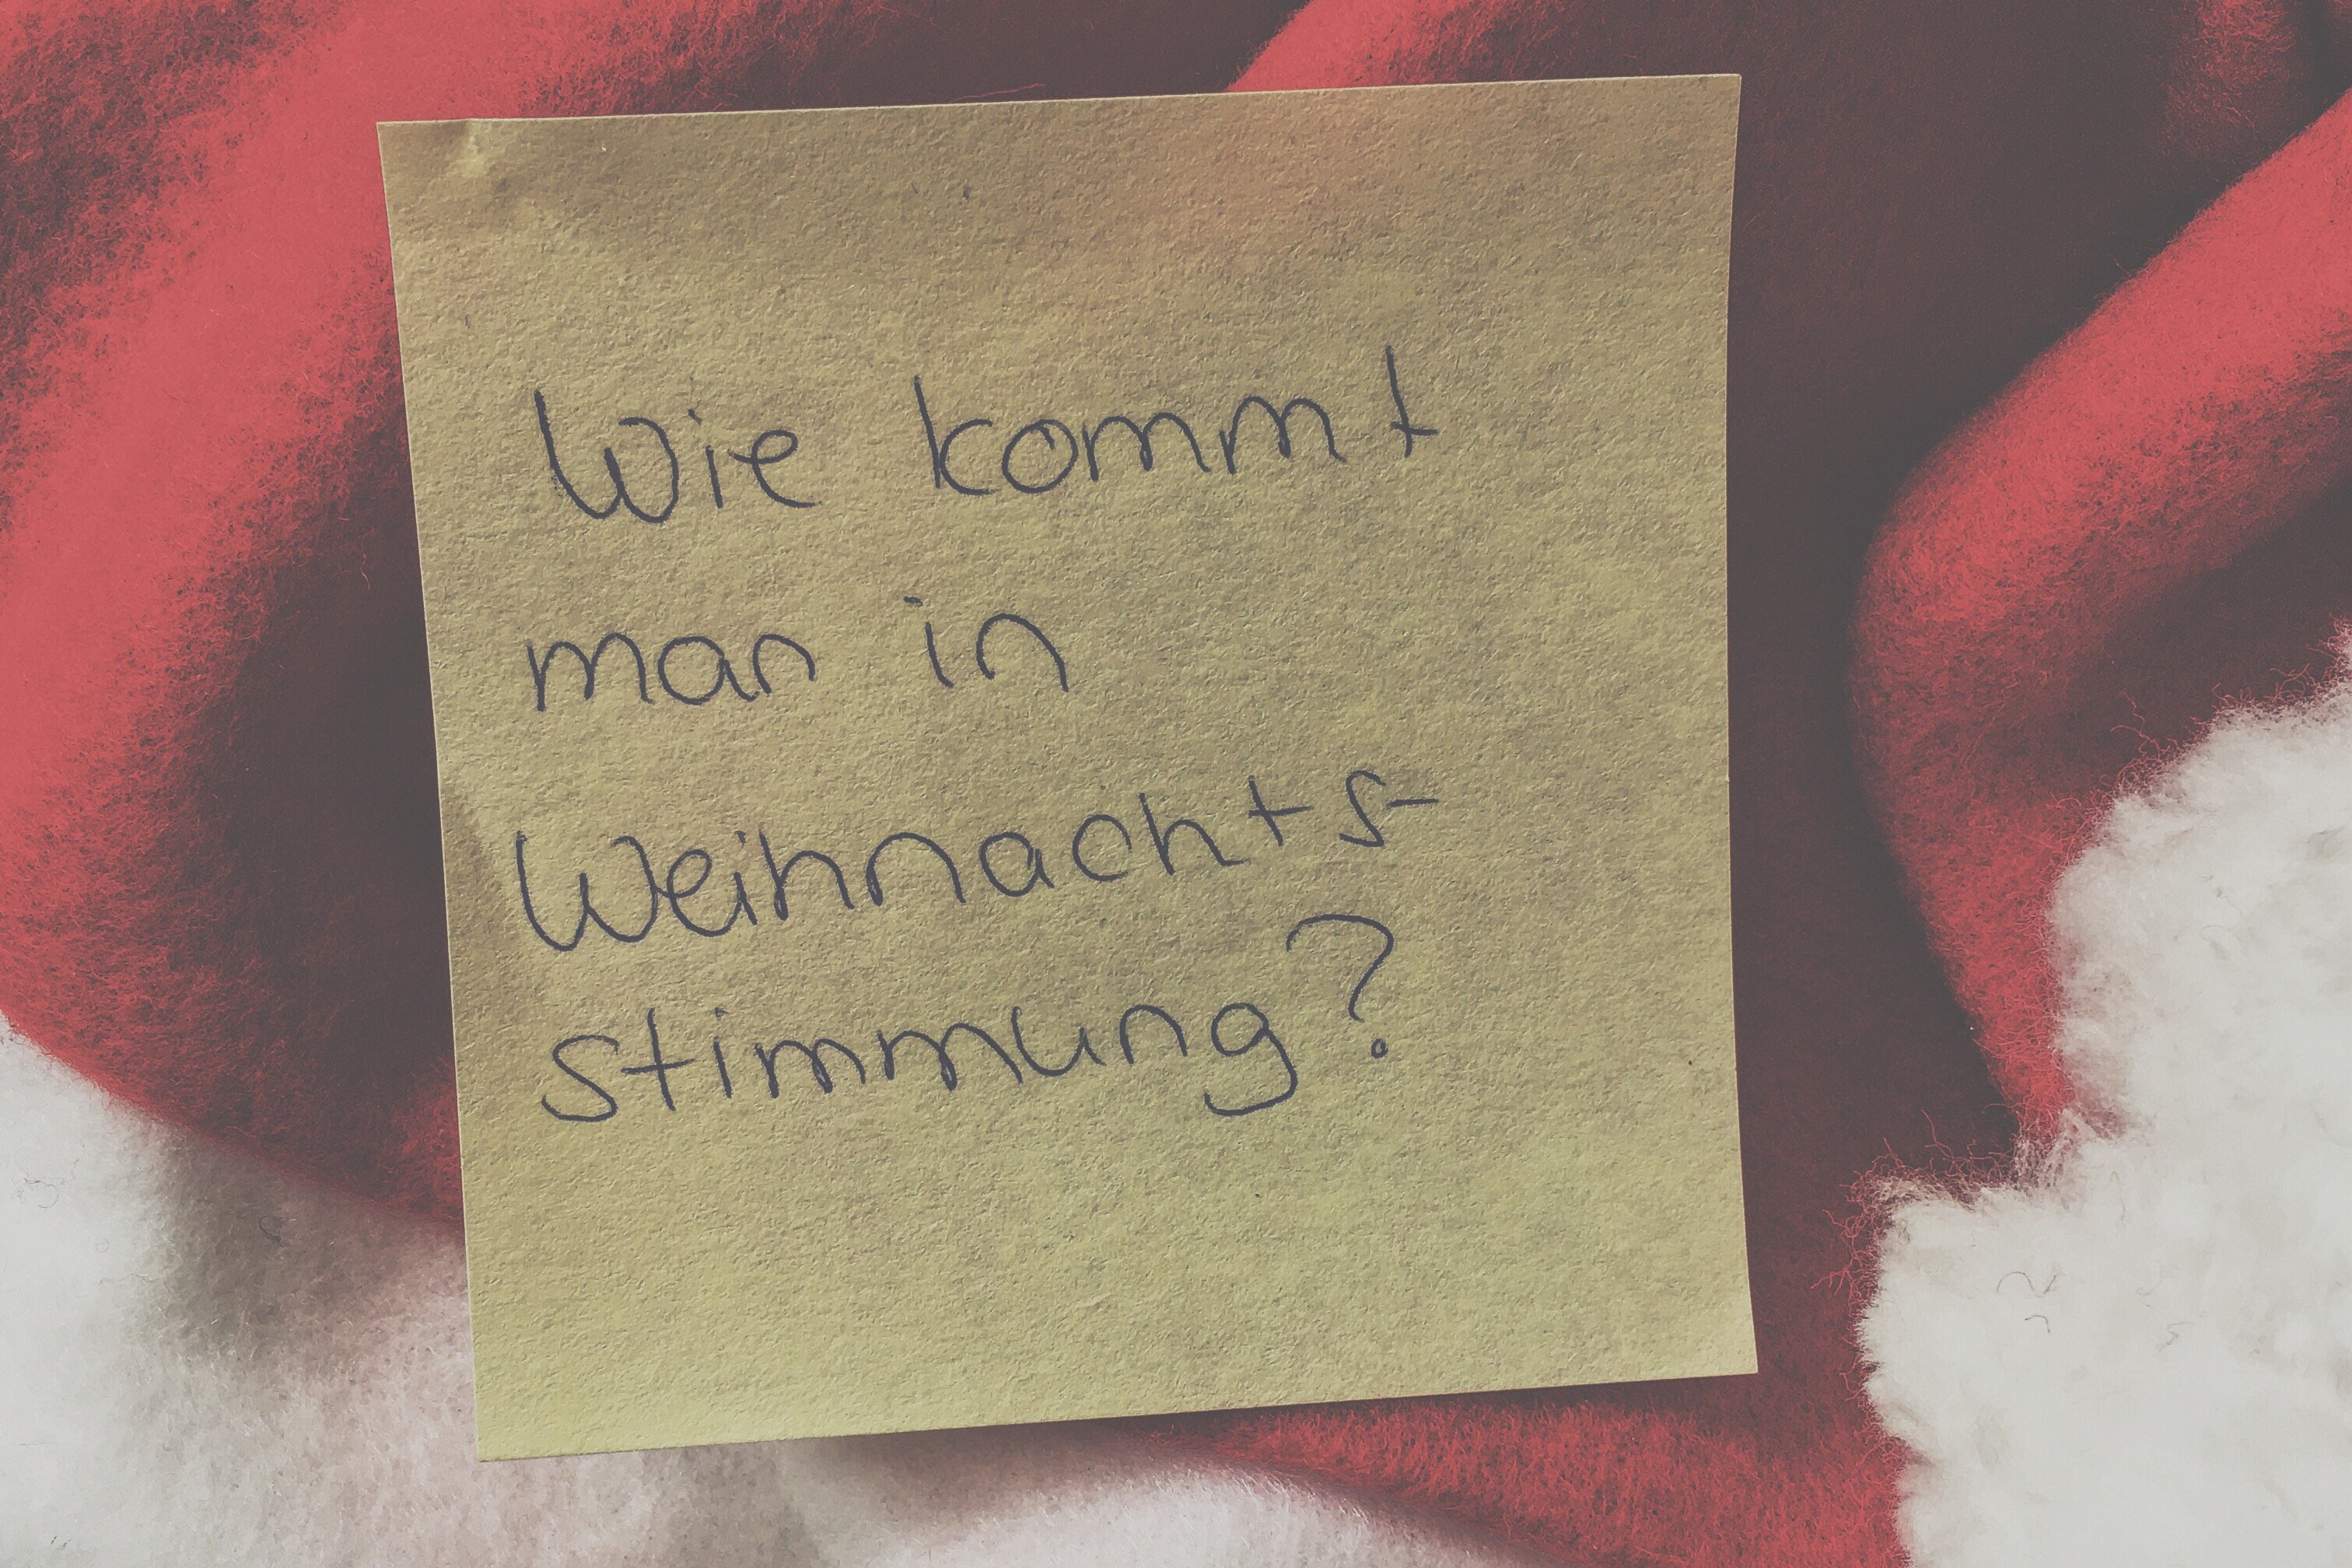 Wie kommt
man in
Weihnachts-
stimmung?